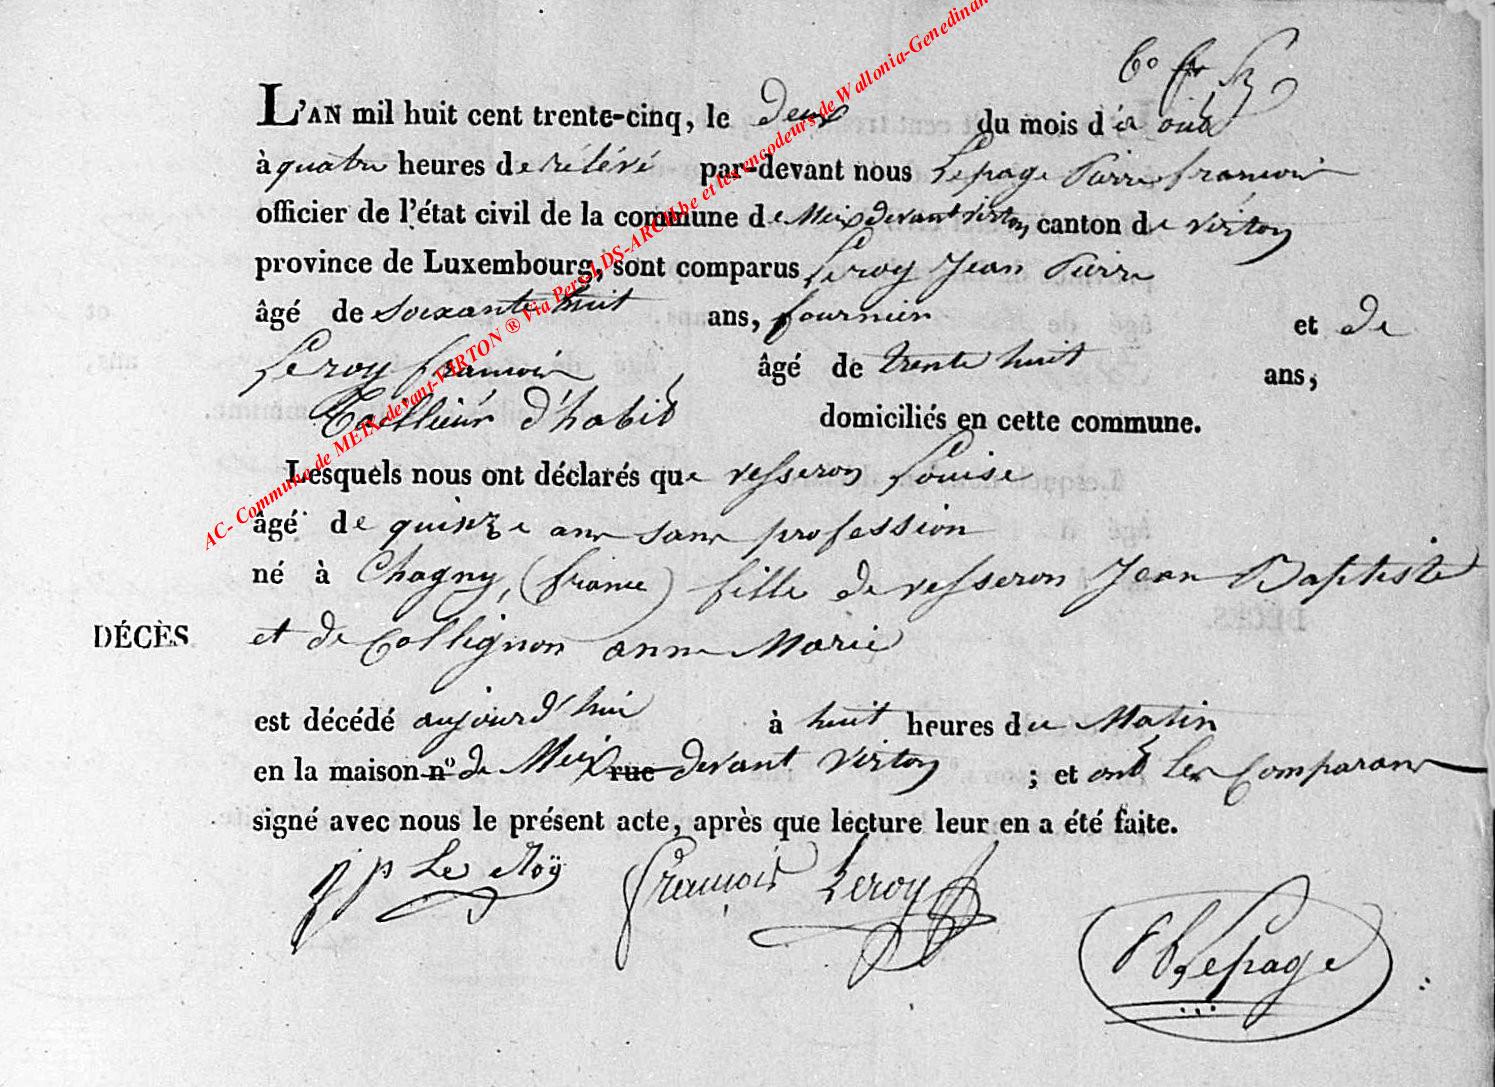 L'AN mil huit cent trente-cinq, le deux du mois d'a oût
à quatre heures de rélévé par-devant nous Lepage Pierre françois
officier de l'état civil de la commune de Meix devant virton, canton de virton
province de Luxembourg, sont comparus Leroy Jean Pierre
âgé de soixante huit ans, fournier et de
Leroy françois âgé de trente huit ans,
Tailleur d'habit domiciliés en cette commune.
Lesquels nous ont déclarés que vesseron Louise
âgé de quinze ans sans profession
né à Chagny, (france) fille de vesseron Jean Baptiste
DÉCÈS et de Collignon anne Marie
est décédé aujourd'hui à huit heures du Matin
en la maison n° de Meix rue devant virton ; et ont les Comparans
signé avec nous le présent acte, après que lecture leur en a été faite.
J p Le Roÿ françois Leroy Lepage
AC- Commune de MEIX-devant-VIRTON ® Via Pers-LDS-ARCH.be et les encodeurs de Wallonia-Genedinan